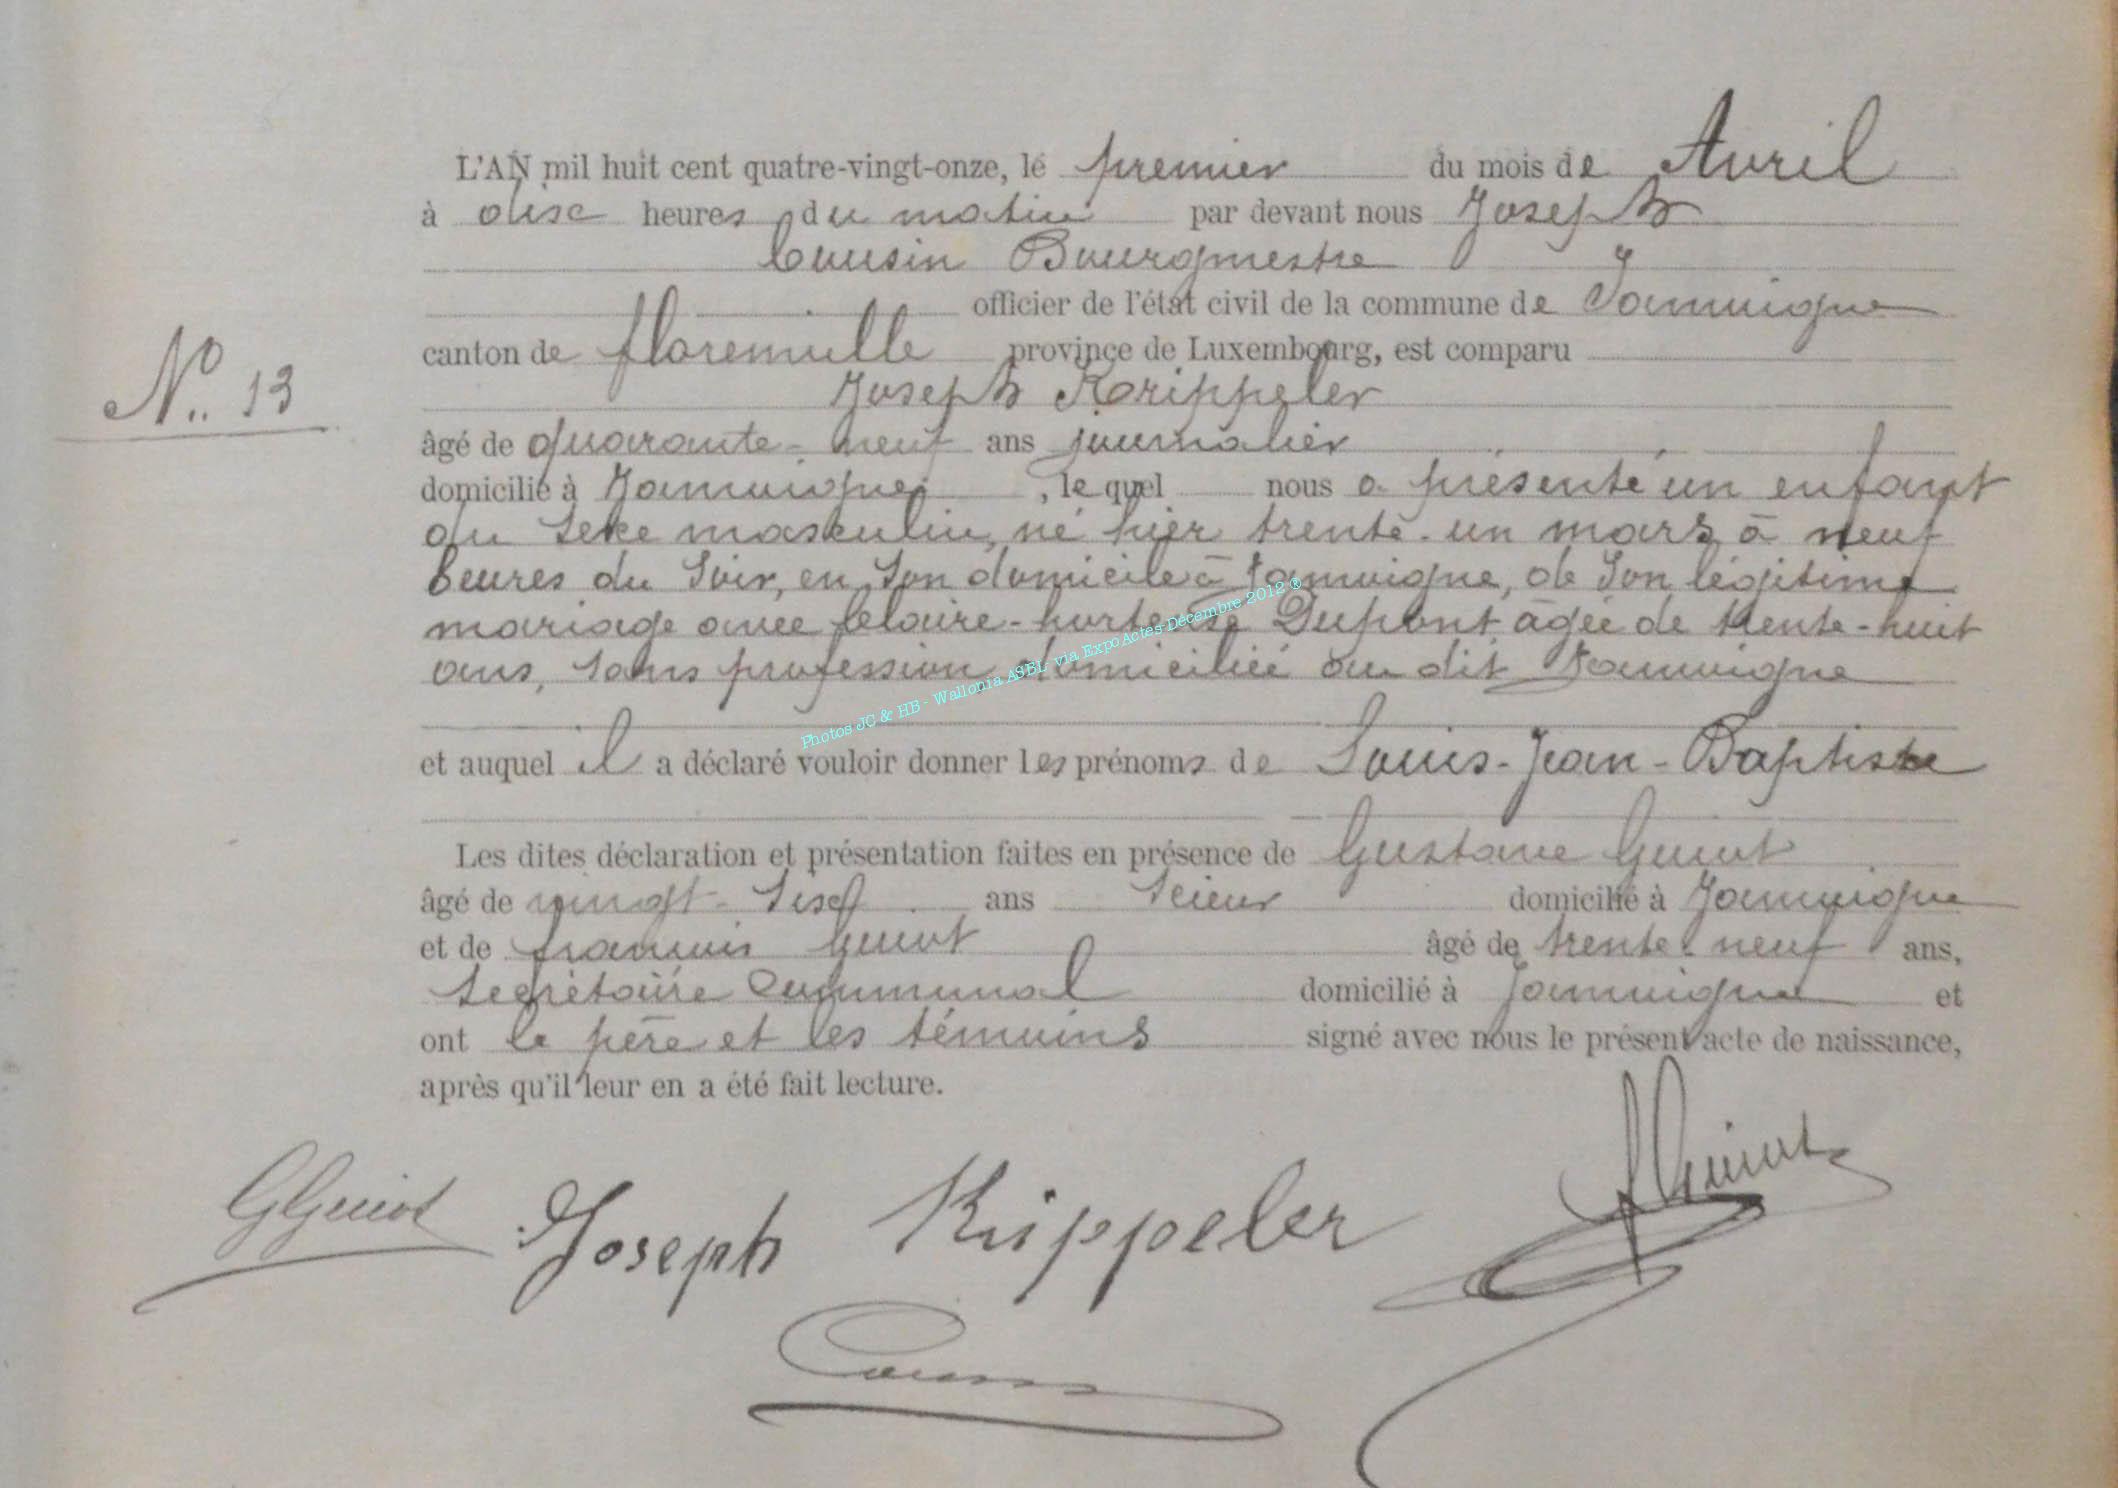 L'AN mil huit cent quatre-vingt-onze, le premier du mois de Avril
à dise heures du matin par devant nous Joseph
Cousin Bourgmestre
officier de l'état civil de la commune de Jamoigne
canton de florenville province de Luxembourg, est comparu
Joseph Krippeler
N° 13
âgé de quarante-neuf ans journalier
domicilié à Jamoigne, lequel nous a présenté un enfant
du sexe masculin, né hier trente-un mars à neuf
heures du soir, en son domicile à Jamoigne, de son légitime
mariage avec Claire-hortense Dupont âgée de trente-huit
ans, sans profession domiciliée au dit Jamoigne
Photos JC & HB - Wallonia ASBL- via ExpoActes-Décembre 2012 ®
et auquel il a déclaré vouloir donner les prénoms de Louis-Jean-Baptiste
Les dites déclaration et présentation faites en présence de Gustave Guiot
âgé de vingt-sept ans scieur domicilié à Jamoigne
et de françois Guiot âgé de trente-neuf ans,
secrétaire communal domicilié à Jamoigne et
ont le père et les témoins signé avec nous le présent acte de naissance,
après qu'il leur en a été fait lecture.
GGuiot Joseph Krippeler fGuiot
Cousin